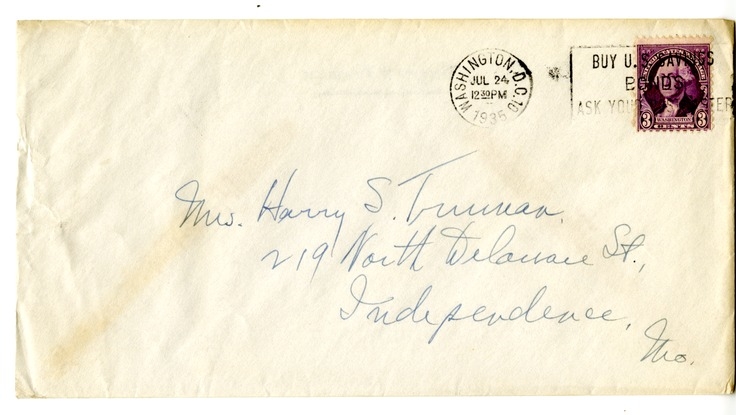 WASHINGTON, D.C. 10
JUL 24
12 30 PM
1935
BUY U.S. SAVINGS
BONDS
ASK YOUR
UNITED STATES POSTAGE
3 WASHINGTON 3
CENTS
Mrs. Harry S. Truman,
219 North Delaware St.,
Independence,
Mo.